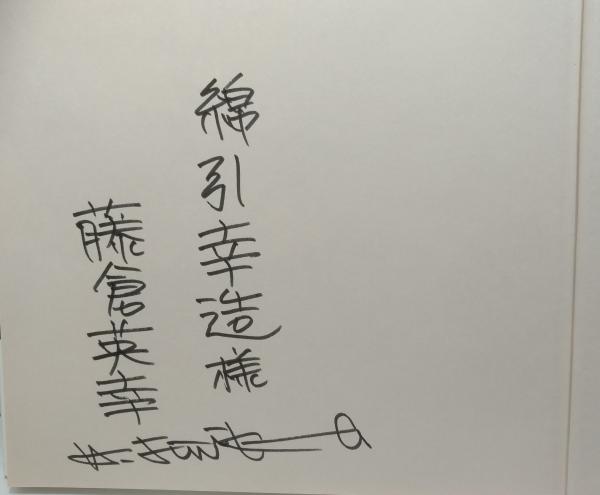 綿引幸造様
藤倉英幸